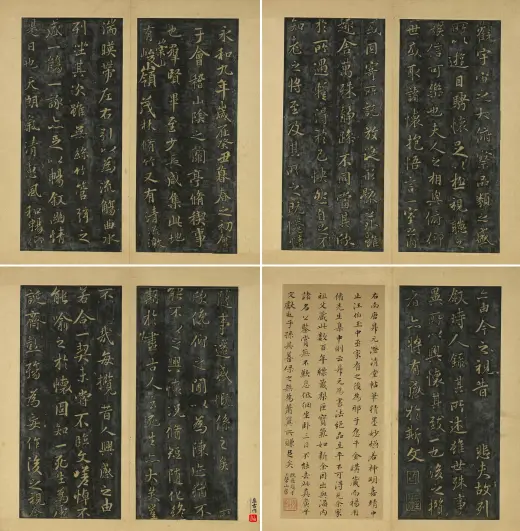 永和九年歲在癸丑暮春之初會
于會稽山陰之蘭亭脩稧事
也群賢畢至少長咸集此地
有崇山峻領茂林脩竹又有清流激
湍暎帶左右引以為流觴曲水
列坐其次雖無絲竹管弦之
盛一觴一詠亦足以暢叙幽情
是日也天朗氣清惠風和暢仰
觀宇宙之大俯察品類之盛
所以遊目騁懷足以極視聽之
娛信可樂也夫人之相與俯仰一
世或取諸懷抱悟言一室之內
或因寄所託放浪形骸之外雖
趣舍萬殊靜躁不同當其欣
於所遇暫得於己快然自足不
知老之將至及其所之既惓情
隨事遷感慨係之矣向之所
欣俛仰之閒以為陳迹猶不
能不以之興懷況脩短隨化終
期於盡古人云死生亦大矣豈
不痛哉每攬昔人興感之由
若合一契未嘗不臨文嗟悼不
能喻之於懷固知一死生為虛
誕齊彭殤為妄作後之視今
亦由今之視昔悲夫故列
叙時人錄其所述雖世殊事
異所以興懷其致一也後之攬
者亦將有感於斯文
右南唐昇元澄清堂帖
明嘉靖中
先生集中則云昇元為書法絕品
祖父藏此數百年
海內
諸名公鑒賞